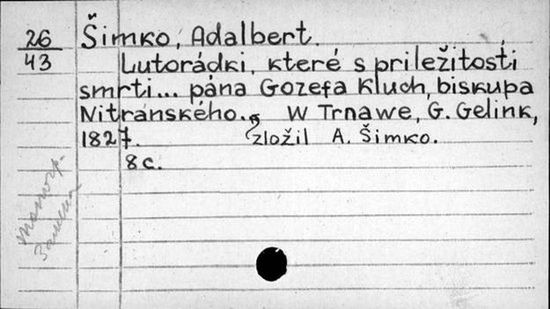 26 Šimko, Adalbert.
43 Lutorádki, které s priležitosti
smrti... pána Gozefa Kluch, biskupa
Nitránského. W Trnawe, G. Gelink,
1827. zložil A. Šimko.
8c.